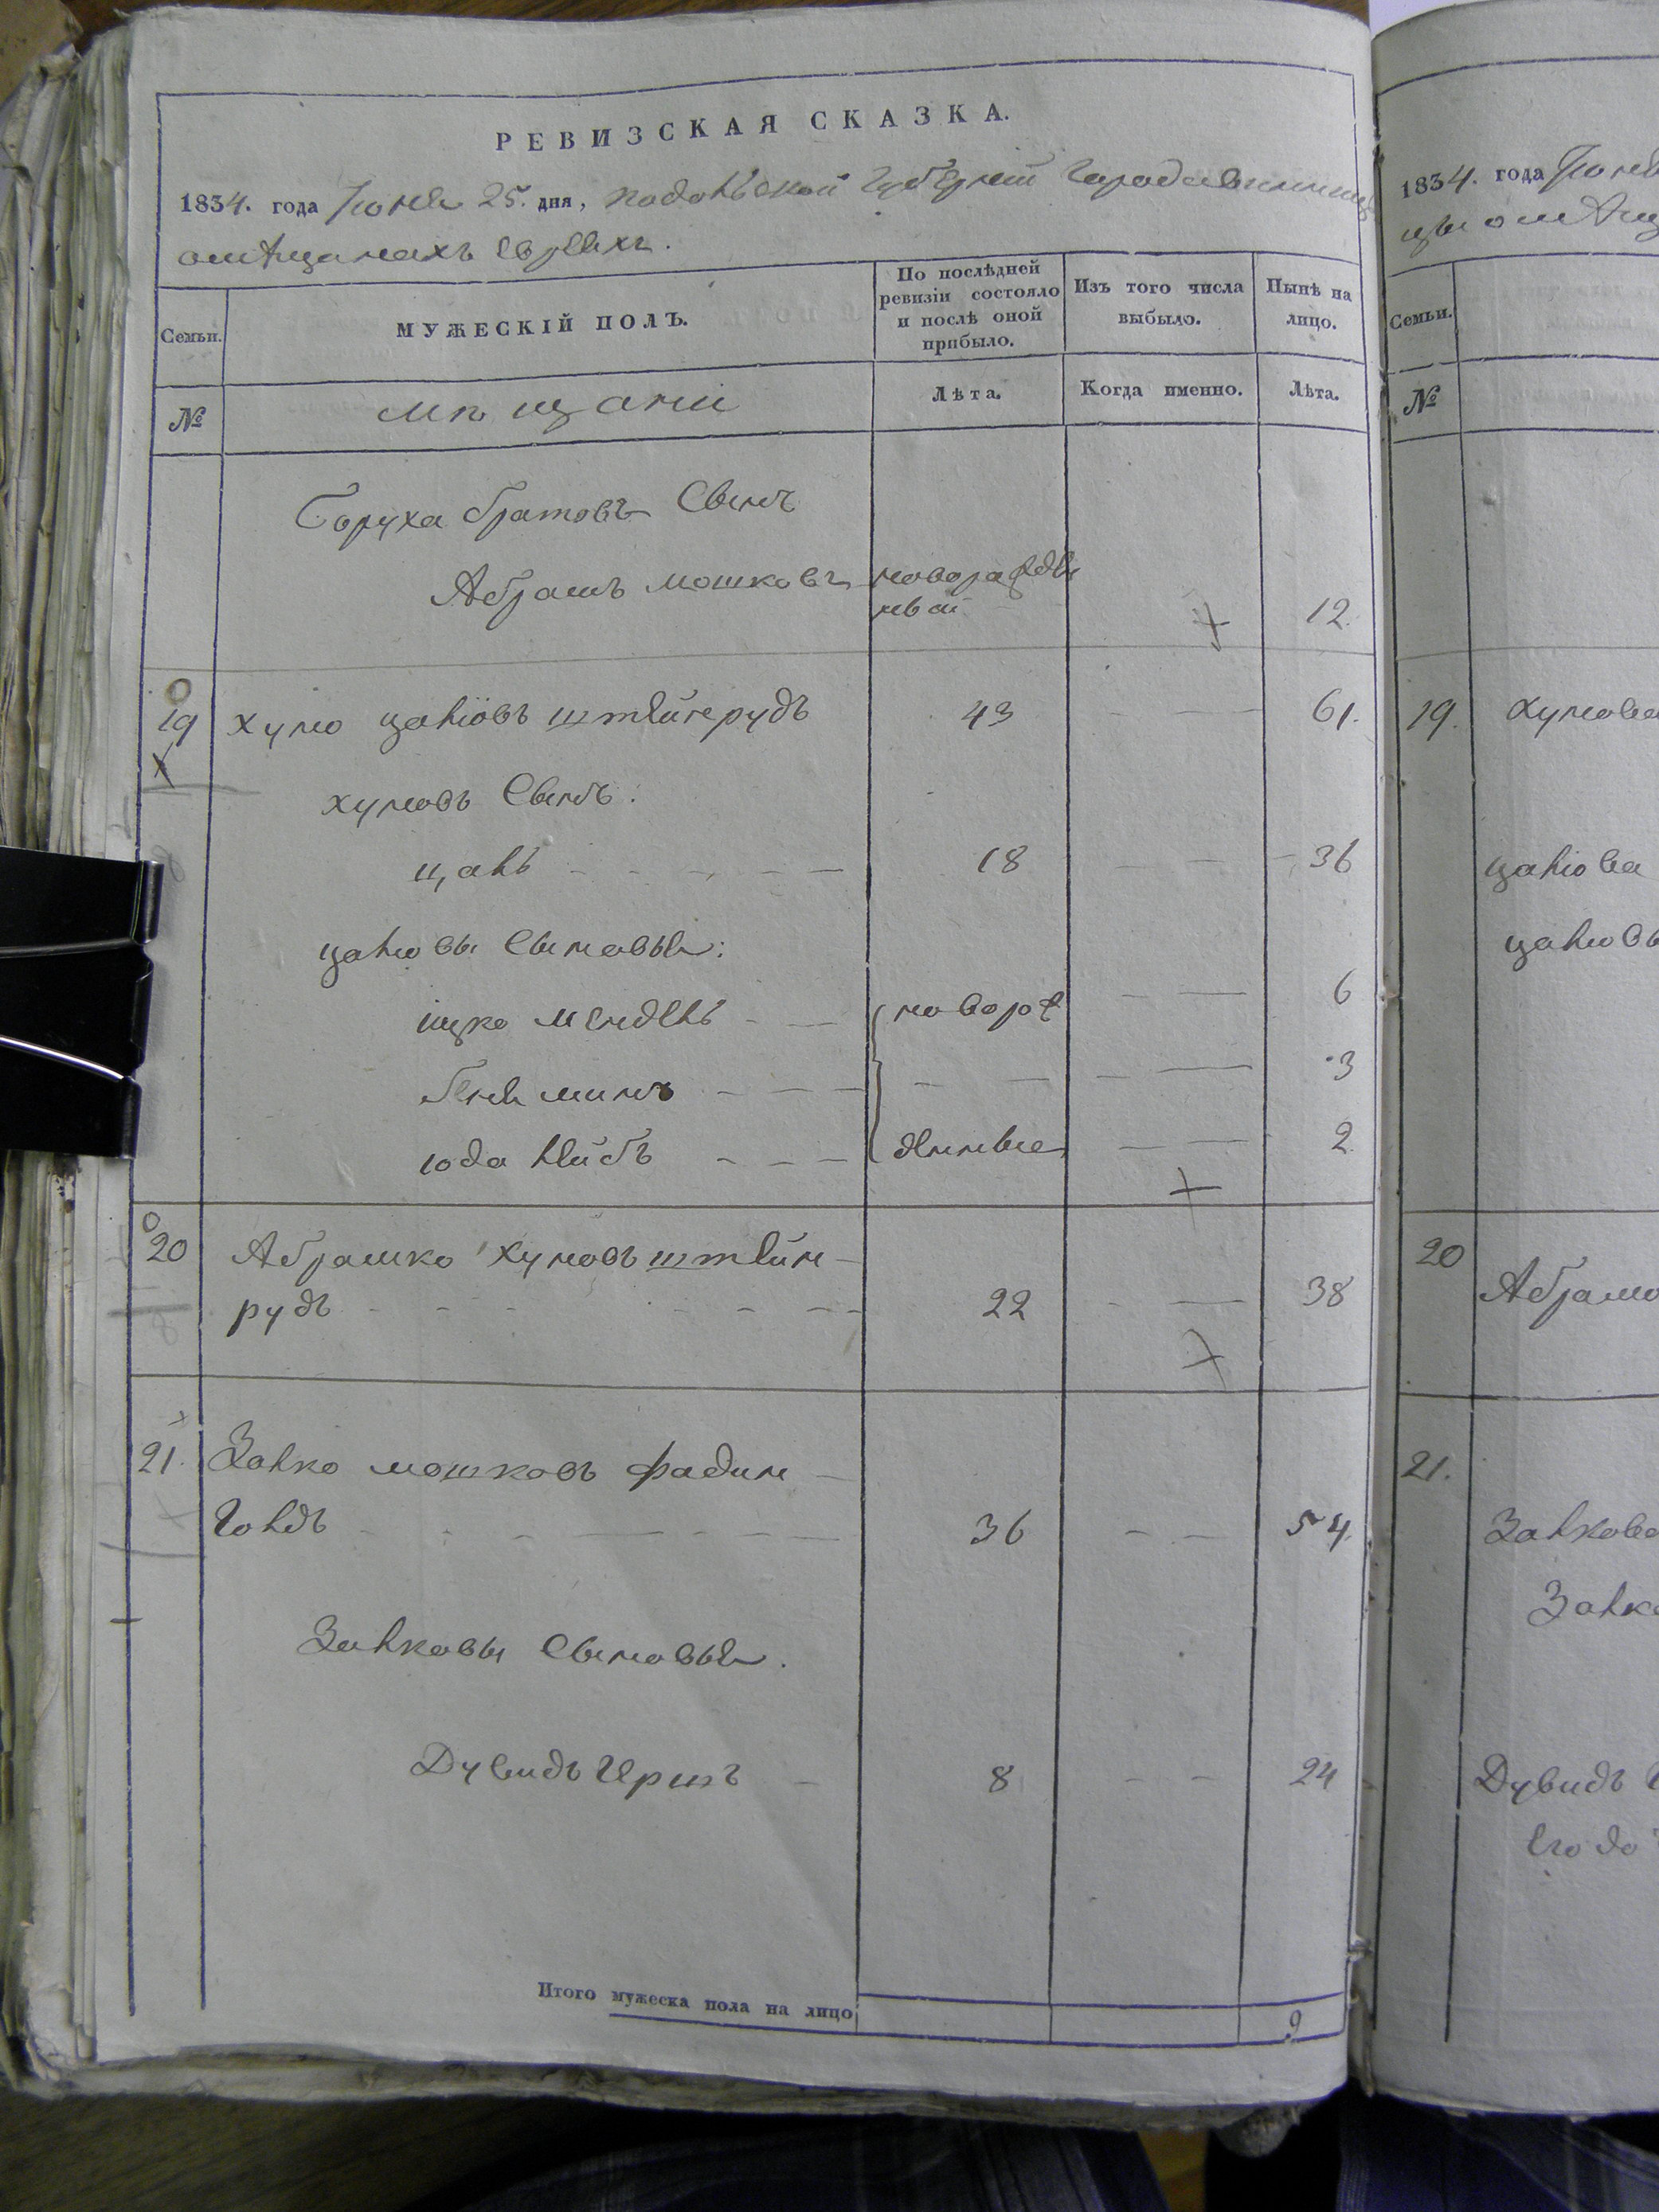 РЕВИЗСКАЯ СКАЗКА.
1834. года Іюня 25. дня, подольской губерній города винницы
омѣщанахъ евреяхъ.
Семьи.
МУЖЕСКІЙ ПОЛЪ.
По послѣдней ревизіи состояло и послѣ оной прибыло.
Изъ того числа выбыло.
Нынѣ на лицо.
№
мѣщани
Лѣта.
Когда именно.
Лѣта.
Боруха братовъ Сынъ
Абрамъ мошковъ новорождѣнный 12.
19 хуно цаліовъ штейнрудъ 43 61.
хуновъ Сынъ:
цаль 18 36
цалювы Сыновья:
ицко мендель новорож 6
бенямин 3
іода лейбъ денные 2
20 Абрашко хуновъ штейн-
рудъ 22 38
21. Залко мошковъ фадин-
голдъ 36 54.
Залковы Сыновья.
Дувидъ Гершъ 8 24
Итого мужеска пола на лицо 9
1834. года Іюня
цы омѣщ
Семьи.
№
19. хунова
цаліова
цалювъ
20
Абрашк
21.
Залкова
Залк
Дувидъ Г
Его до